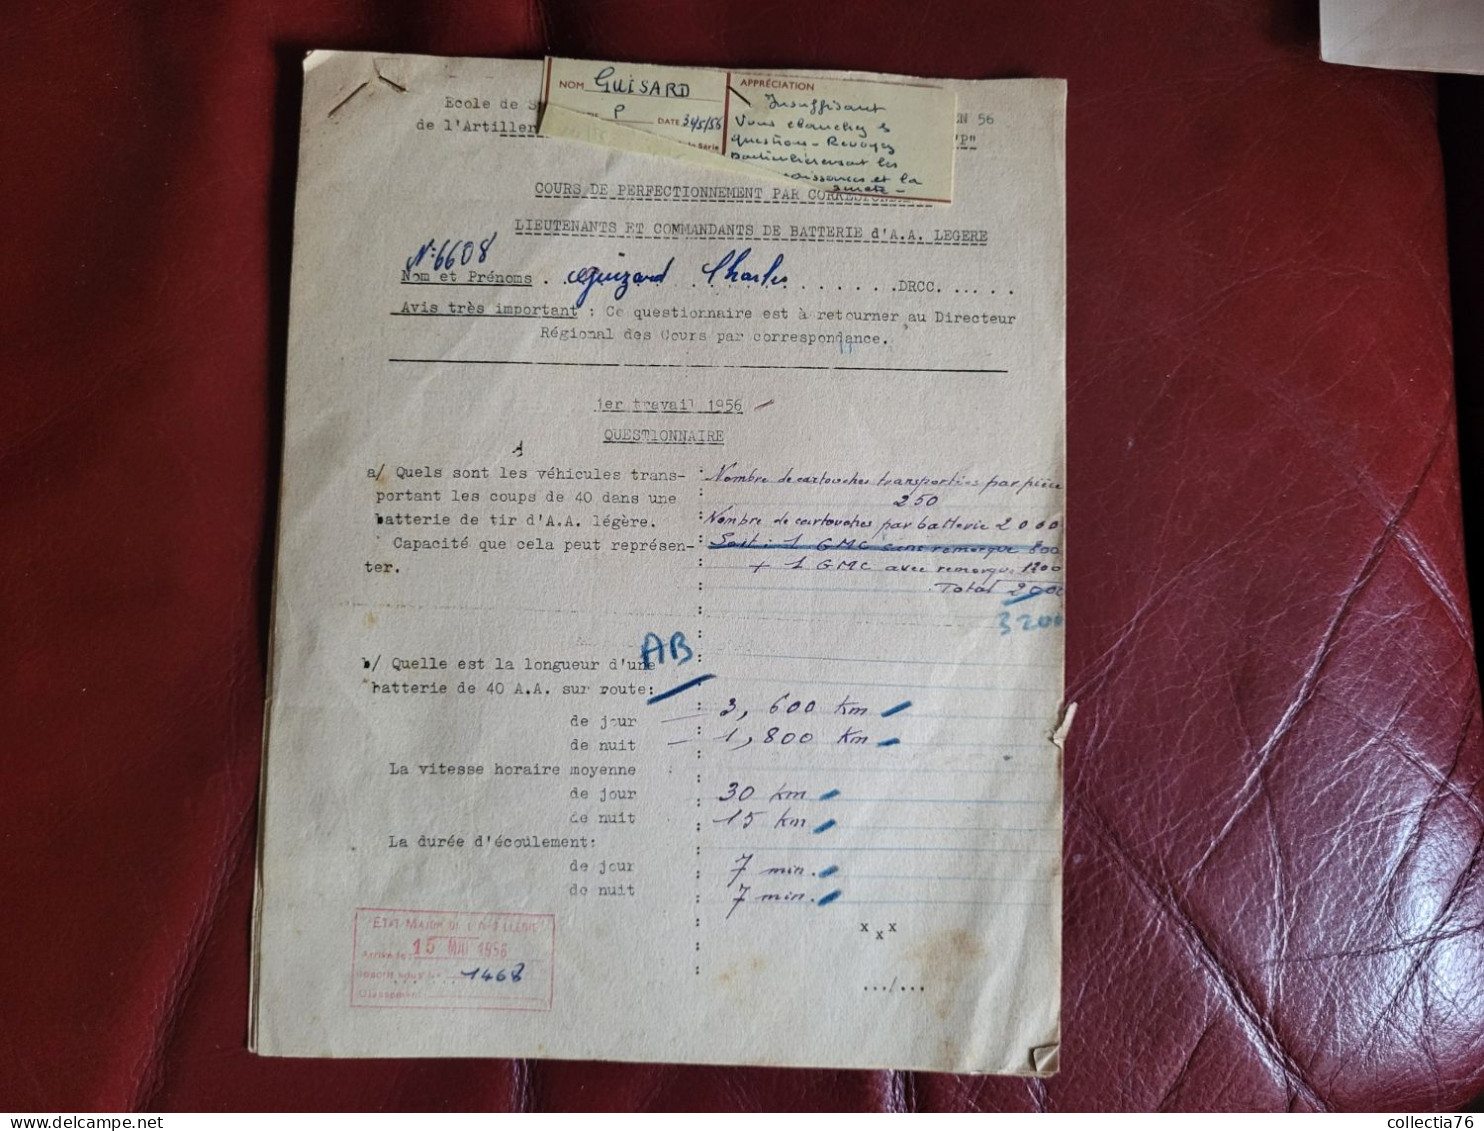 Ecole de S
de l'Artiller
NOM GUISARD
P DATE 24/5/56
de Série
APPRÉCIATION
Insuffisant
Vous ébauchez les
questions - Revoyez
particulièrement les
et la
EN 56
COURS DE PERFECTIONNEMENT PAR CORRESPONDANCE
LIEUTENANTS ET COMMANDANTS DE BATTERIE d'A.A. LEGERE
N° 6608
Nom et Prénoms . . Guizard Charles . . . . . . . DRCC. . . . . .
Avis très important : Ce questionnaire est à retourner au Directeur
Régional des Cours par correspondance.
1er travail 1956
QUESTIONNAIRE
a/ Quels sont les véhicules trans-
portant les coups de 40 dans une
batterie de tir d'A.A. légère.
Capacité que cela peut représen-
ter.
Nombre de cartouches transportées par pièce
250
Nombre de cartouches par batterie 2000
Soit : 1 GMC sans remorque 800
+ 1 GMC avec remorque 1200
Total 2000
3200
AB
b/ Quelle est la longueur d'une
batterie de 40 A.A. sur route:
de jour 3,600 km
de nuit 1,800 km
La vitesse horaire moyenne :
de jour 30 km
de nuit 15 km
La durée d'écoulement:
de jour 7 min.
de nuit 7 min.
x x x
.../...
ETAT-MAJOR DE L'ARTILLERIE
Arrivé le: 15 MAI 1956
1468
Classement:
collectia76